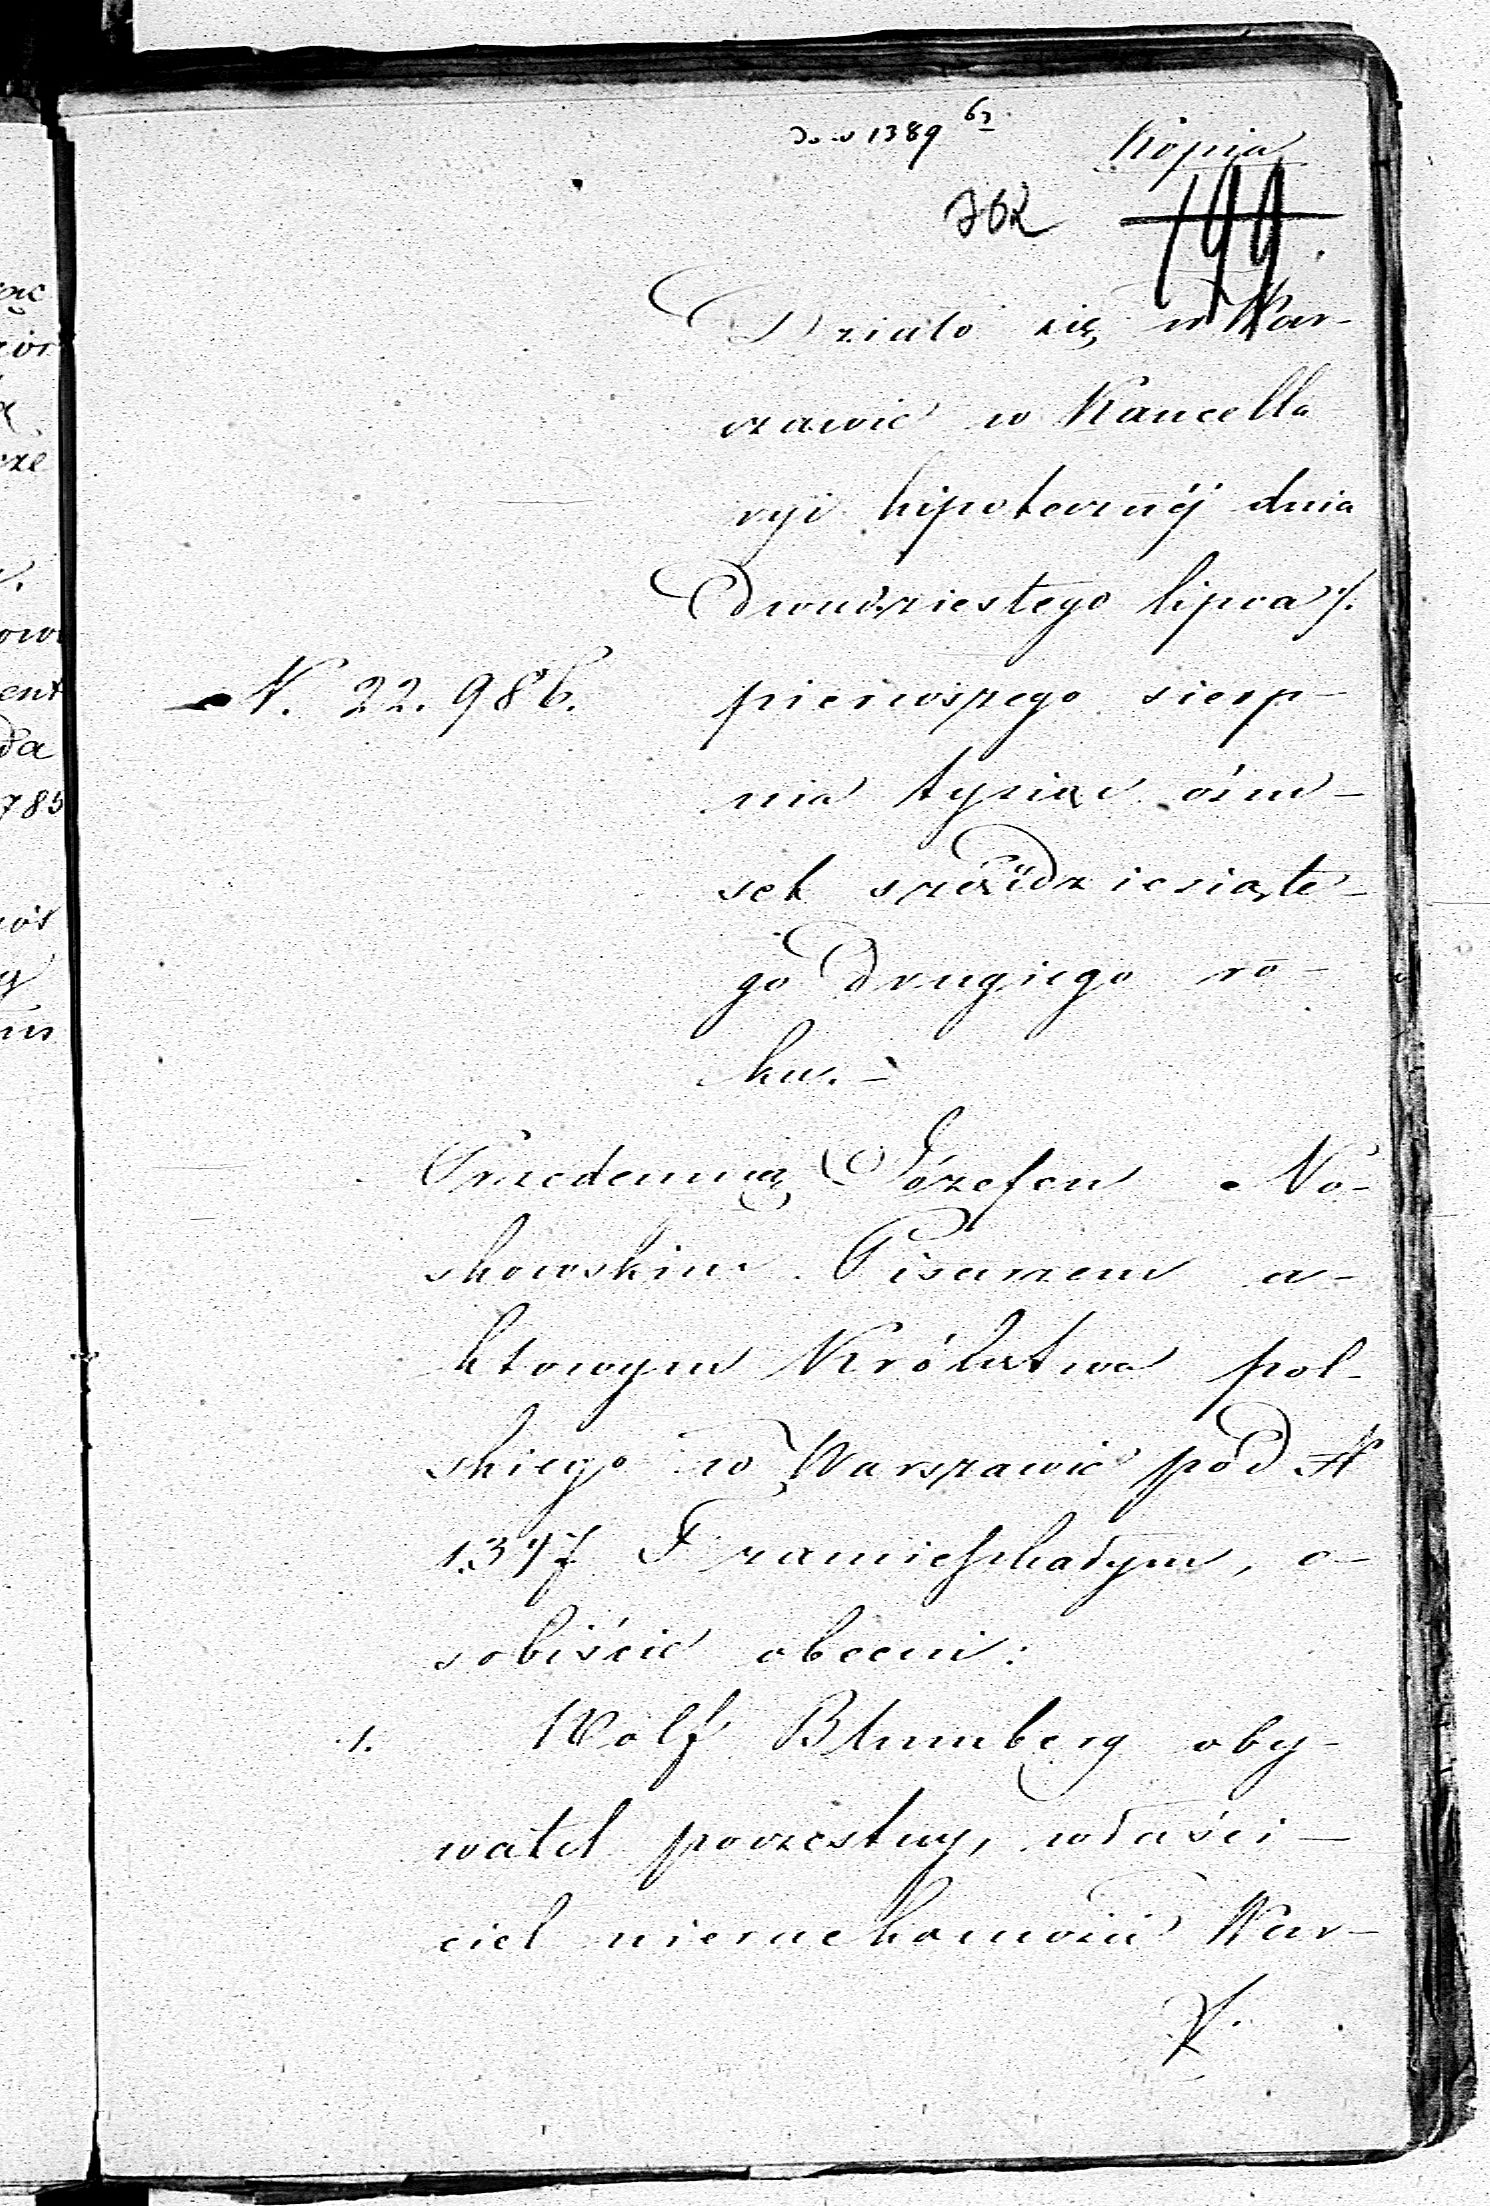 do N 1389 62
Kopia
762 199.
Działo się w War-
szawie w Kancella
ryi hipotecznéj dnia
dwudziestego lipca /.
N. 22.986. pierwszego sierp-
nia tysiąc ośm-
set sześćdziesiąte-
go drugiego ro-
ku. -
Przedemną Józefem No-
skowskim Pisarzem a-
ktowym Królestwa pol-
skiego w Warszawie pod N
1347 F zamieszkałym, o-
sobiście obecni:
1. Wolf Blumberg oby-
watel poczestny, właści-
ciel nieruchomości War-